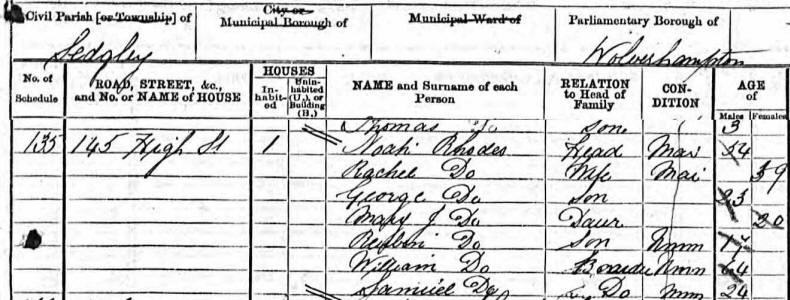 Civil Parish [or Township] of
City or Municipal Borough of
Municipal Ward of
Parliamentary Borough of
Sedgley
Wolverhampton
No. of Schedule
ROAD, STREET, &c., and No. or NAME of HOUSE
HOUSES
In-habit-ed
Unin-habited (U.), or Building (B.)
NAME and Surname of each Person
RELATION to Head of Family
CON-DITION
AGE of
Males
Females
Thomas Do Son 3
135 145 High St 1 Noah Rhodes Head Mar 54
Rachel Do Wife Mar 59
George Do Son 23
Mary J Do Daur 20
Reuben Do Son Unm
William Do Boarder Unm 64
Samuel Do Do Unm 24